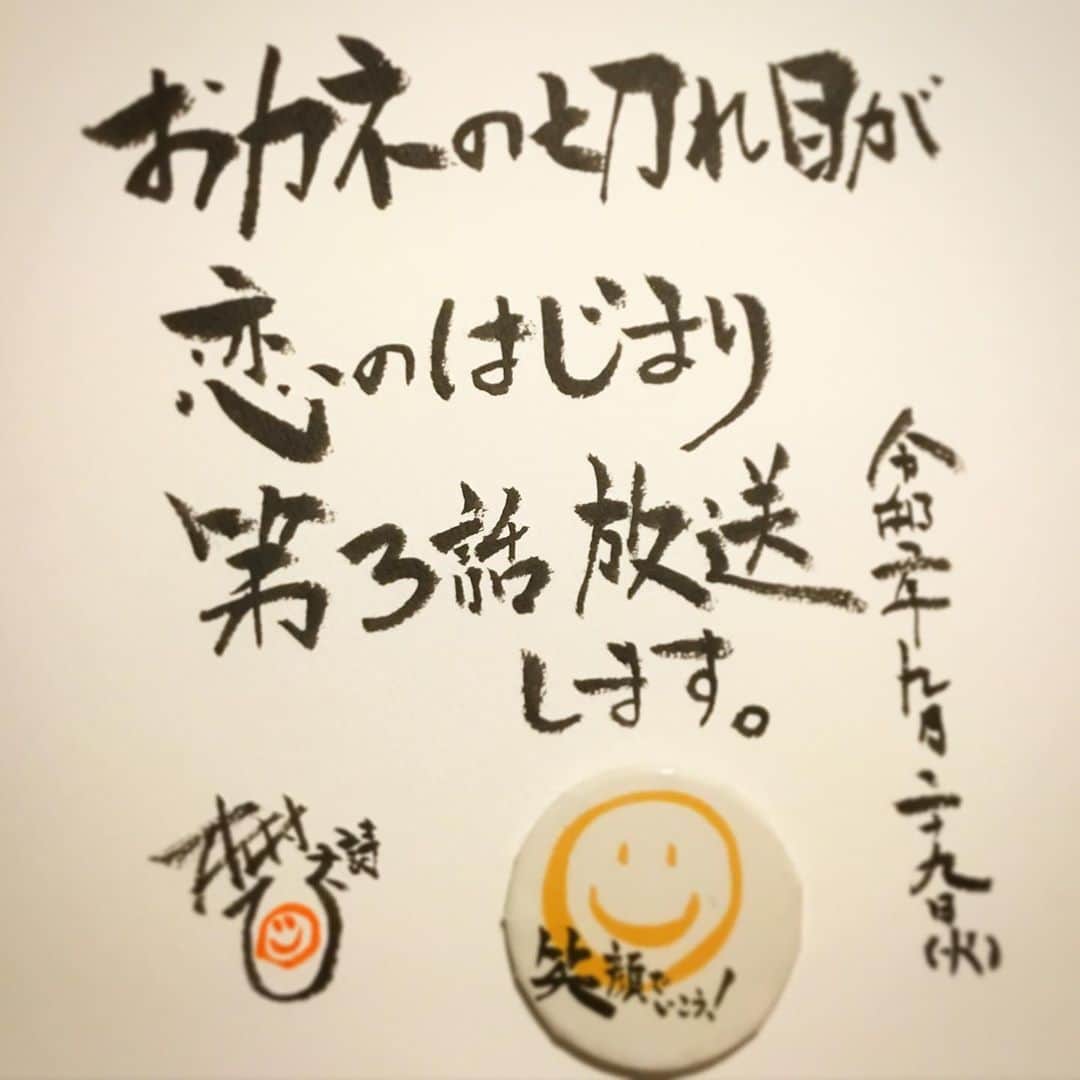 おカネの切れ目が
恋のはじまり
第3話放送
します。
令和二年九月二十九日(火)
笑顔でいこう!